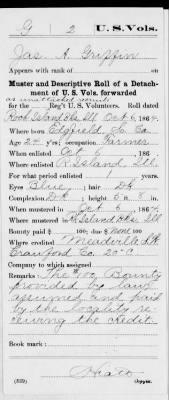 G 2 U.S. Vols.
Jas. A. Griffin
Appears with rank of on
Muster and Descriptive Roll of a Detachment
of U. S. Vols. forwarded
as unattached recruits
for the Reg't U.S. Volunteers. Roll dated
Rock Island Bks Ill Oct 6, 1864.
Where born Edgfield So. Ca.
Age 24 y'rs; occupation Farmer
When enlisted Oct 6, 1864
Where enlisted R. Island, Ill.
For what period enlisted 1 years.
Eyes Blue; hair Dk
Complexion Dk; height 5 ft. 8 in.
When mustered in Oct 6, 1864
Where mustered in R. Island Bks Ill
Bounty paid $ 100; due $ None 100
Where credited Meadville, Pa
Crawford Co. 20" C.
Company to which assigned
Remarks: The $100 Bounty
provided by law
assumed and paid
by the locality re-
ceiving the credit.
Book mark:
(339) Copyist.